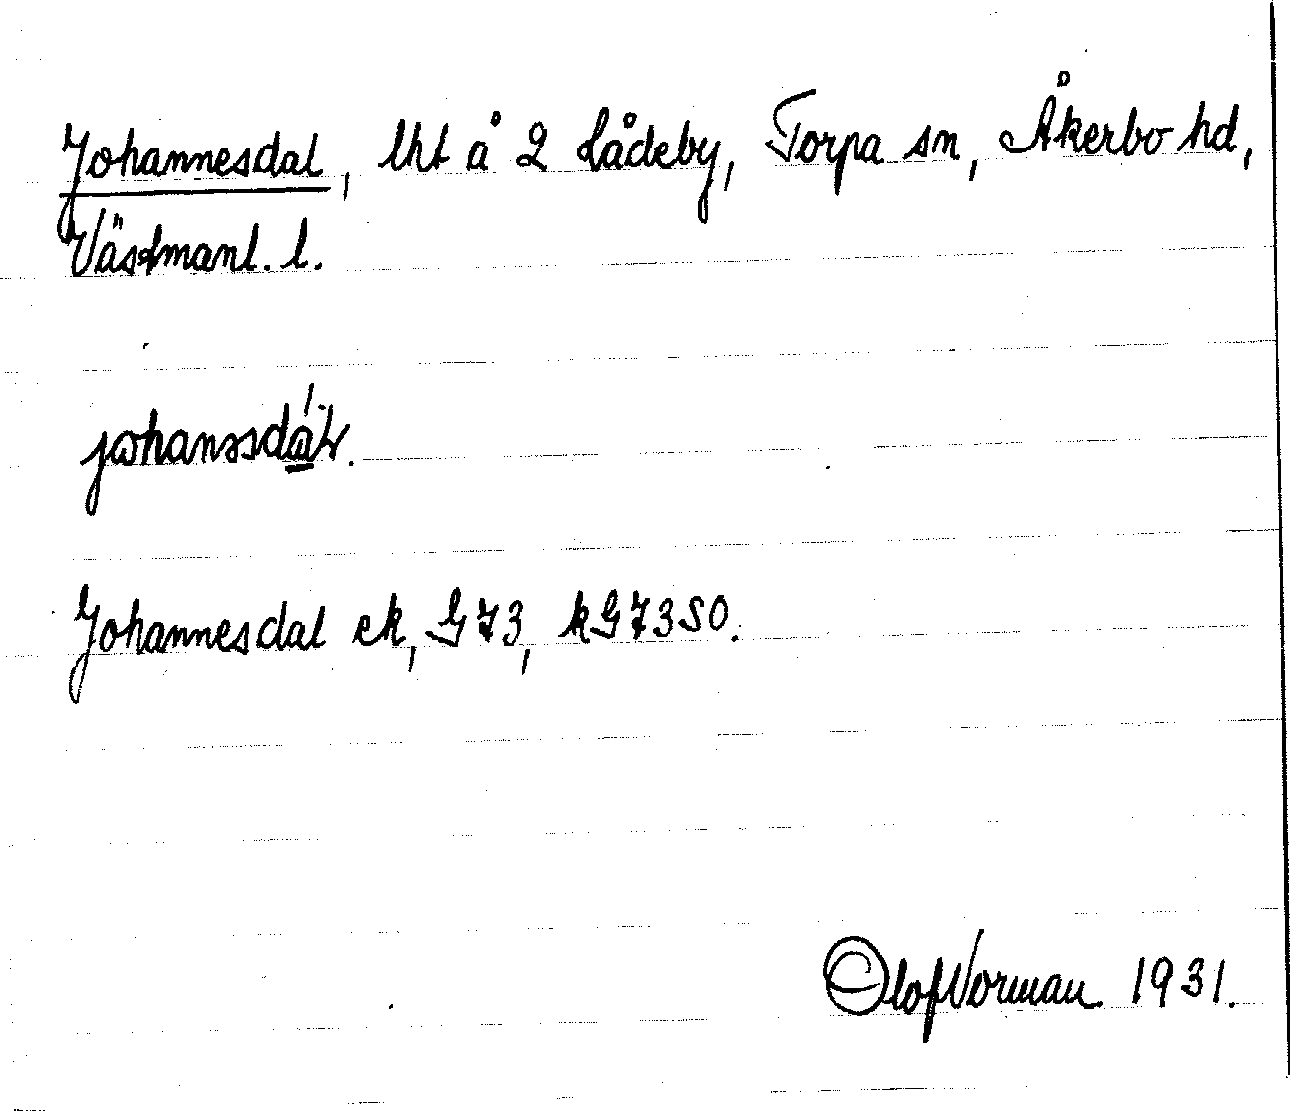 Johannesdal, lht å 2 Lådeby, Torpa sn, Åkerbo hd,
Västmanl. l.
Johannesdal ek, G73, kG73SO.
Olof Norman 1931.